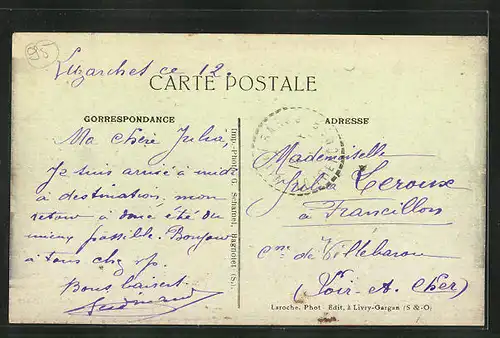 95
Luzarches ce 12.
CARTE POSTALE
CORRESPONDANCE
ADRESSE
Ma chère Julia,
Je suis arrivé à midi
à destination, mon
retour a été du
mieux possible. Bonjour
à tous chez
Bons baisers.
Imp.-Photo G. Sechamel, Bagnolet (S.)
Mademoiselle
Julia Leroux
à Francillon
cne de Villebarou
(Loir-et-Cher)
Laroche, Phot - Edit, à Livry-Gargan (S &-O)